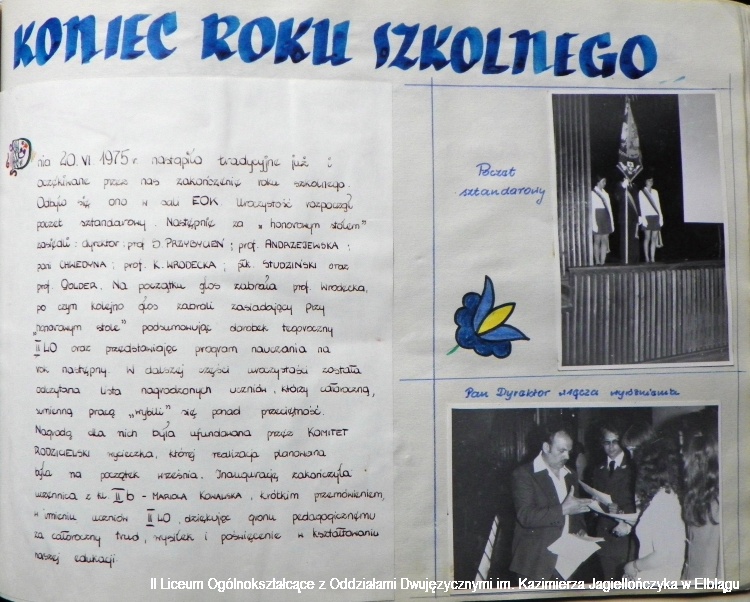 KONIEC ROKU SZKOLNEGO
Dnia 20.VI.1975 r. nastąpiło tradycyjne już i
oczekiwane przez nas zakończenie roku szkolnego.
Odbyło się ono w sali EOK. Uroczystość rozpoczął
poczet sztandarowy. Następnie za "honorowym stołem"
zasiedli: dyrektor: prof J. PRZYBYLEŃ; prof. ANDRZEJEWSKA;
pani CHWEDYNA; prof. K. WRODECKA; płk. STUDZIŃSKI oraz
prof. GOLDER. Na początku głos zabrała prof. Wrodecka,
po czym kolejno głos zabrali zasiadający przy
"honorowym stole" podsumowując dorobek tegoroczny
II LO oraz przedstawiając program nauczania na
rok następny. W dalszej części uroczystości została
odczytana lista nagrodzonych uczniów, którzy całoroczną,
sumienną pracą "wybili" się ponad przeciętność.
Nagrodą dla nich była ufundowana przez KOMITET
RODZICIELSKI wycieczka, której realizacja planowana
była na początek września. Inaugurację zakończyła
uczennica z kl. II b - MARIOLA KOWALSKA, krótkim przemówieniem,
w imieniu uczniów II LO, dziękując gronu pedagogicznemu
za całoroczny trud, wysiłek i poświęcenie w kształtowaniu
naszej edukacji.
Poczet
sztandarowy
Pan Dyrektor wręcza wyróżnienia
II Liceum Ogólnokształcące z Oddziałami Dwujęzycznymi im. Kazimierza Jagiellończyka w Elblągu